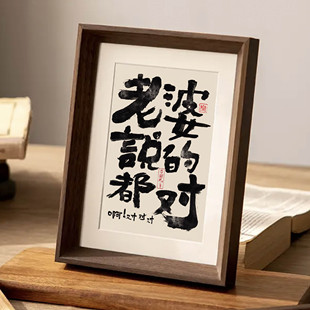 老婆
說的
都对
啊!对对对